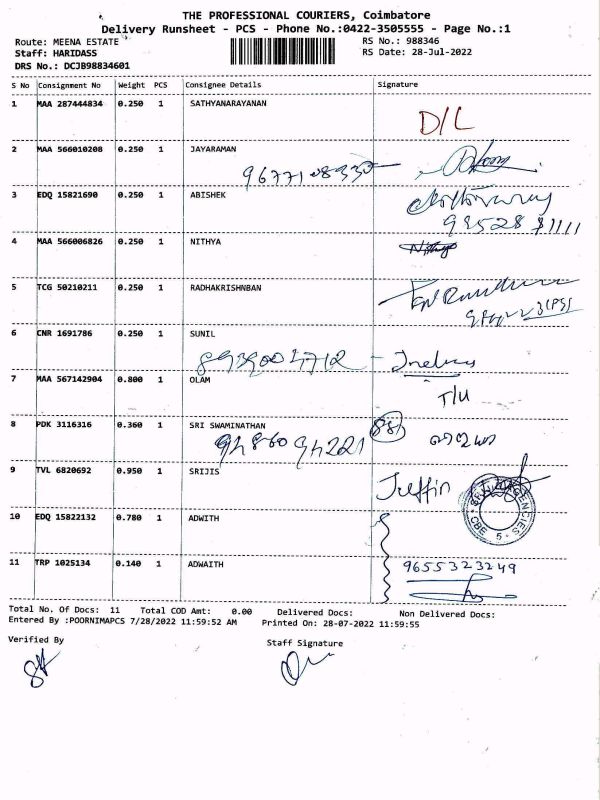 THE PROFESSIONAL COURIERS, Coimbatore
Delivery Runsheet - PCS - Phone No.:0422-3505555 - Page No.:1
Route: MEENA ESTATE
RS No.: 988346
Staff: HARIDASS
RS Date: 28-Jul-2022
DRS No.: DCJB98834601
S No Consignment No Weight PCS Consignee Details Signature
1 MAA 287444834 0.250 1 SATHYANARAYANAN
D/L
2 MAA 566010208 0.250 1 JAYARAMAN
3 EDQ 15821690 0.250 1 ABISHEK
4 MAA 566006826 0.250 1 NITHYA
Nithya
5 TCG 50210211 0.250 1 RADHAKRISHNBAN
6 CNR 1691786 0.250 1 SUNIL
7 MAA 567142904 0.800 1 OLAM
T/U
8 PDK 3116316 0.360 1 SRI SWAMINATHAN
94860 94221
9 TVL 6820692 0.950 1 SRIJIS
AGENCIES CBE 5
10 EDQ 15822132 0.780 1 ADWITH
11 TRP 1025134 0.140 1 ADWAITH
9655323249
Total No. Of Docs: 11 Total COD Amt: 0.00 Delivered Docs: Non Delivered Docs:
Entered By :POORNIMAPCS 7/28/2022 11:59:52 AM Printed On: 28-07-2022 11:59:55
Verified By Staff Signature